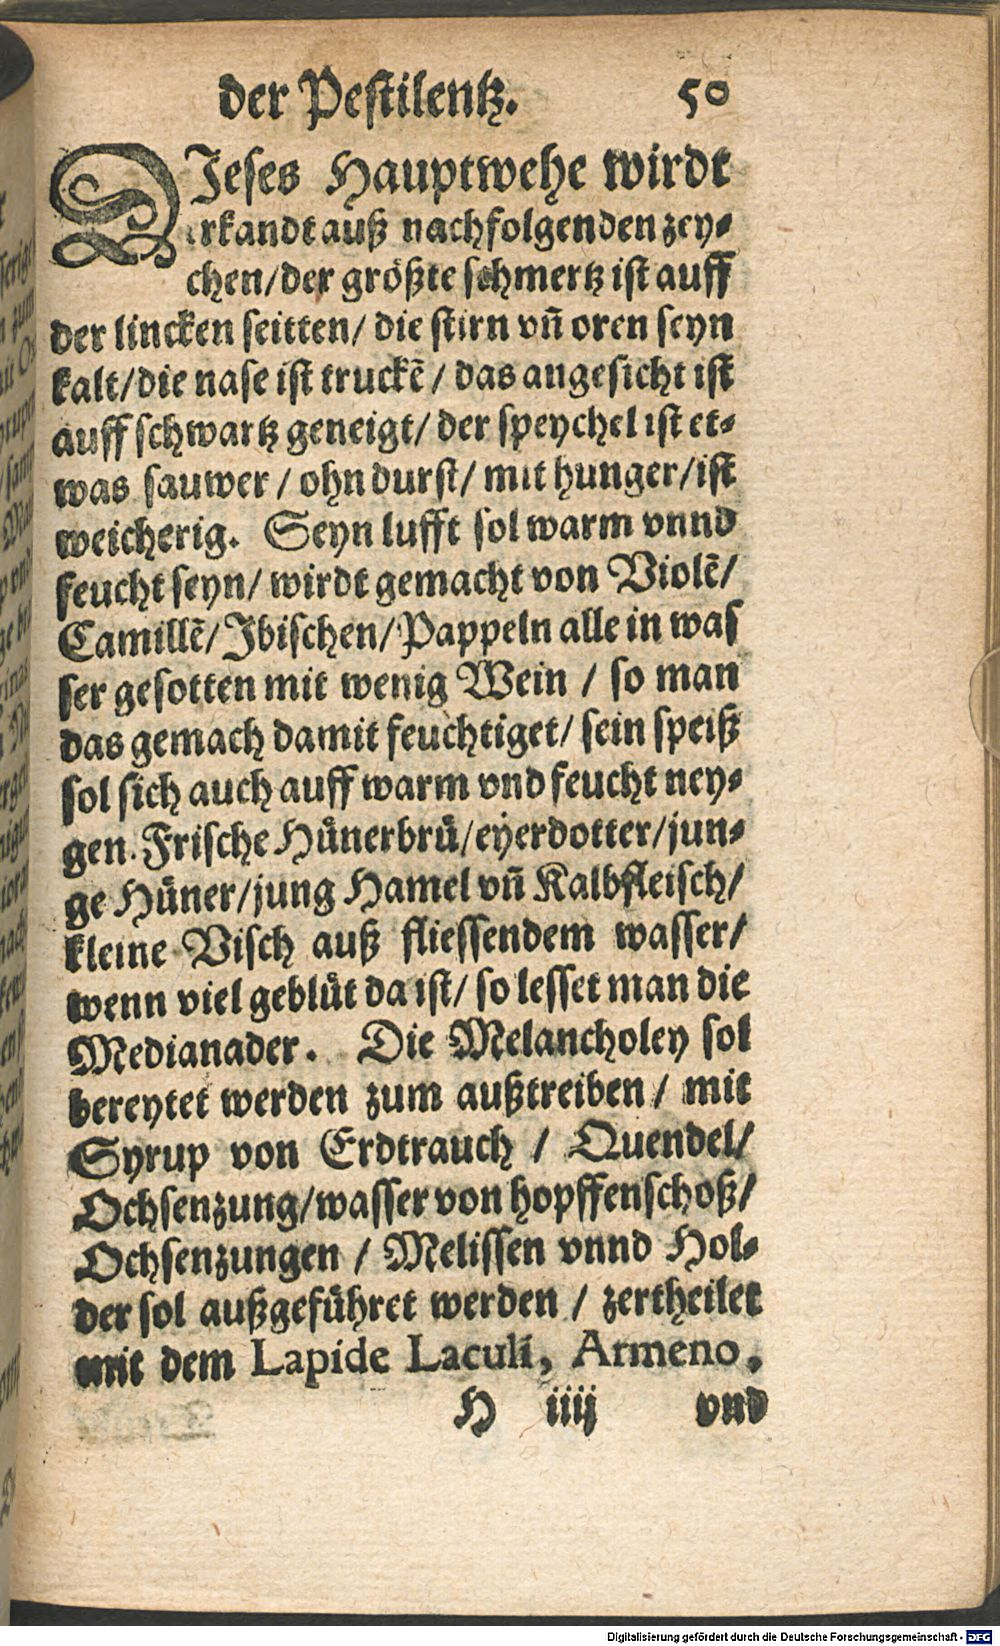 der Pestilentz. 50
DJeses Hauptwehe wirdt
erkandt auß nachfolgenden zey⸗
chen/der größte schmertz ist auff
der lincken seitten/ die stirn vñ oren seyn
kalt/die nase ist truckẽ/ das angesicht ist
auff schwartz geneigt/ der speychel ist et⸗
was sauwer/ ohn durst/ mit hunger/ist
weicherig. Seyn lufft sol warm vnnd
feucht seyn/ wirdt gemacht von Violẽ/
Camillẽ/Jbischen/Pappeln alle in was
ser gesotten mit wenig Wein / so man
das gemach damit feuchtiget/ sein speiß
sol sich auch auff warm vnd feucht ney⸗
gen. Frische Hůnerbrů/eyerdotter/jun⸗
ge Hůner/jung Hamel vñ Kalbfleisch/
kleine Visch auß fliessendem wasser/
wenn viel geblůt da ist/ so lesset man die
Medianader. Die Melancholey sol
bereytet werden zum außtreiben/ mit
Syrup von Erdtrauch / Quendel/
Ochsenzung/wasser von hopffenschoß/
Ochsenzungen / Melissen vnnd Hol⸗
der sol außgefůhret werden / zertheilet
mit dem Lapide Laculi, Armeno,
H iiij vnd
Digitalisierung gefördert durch die Deutsche Forschungsgemeinschaft - DFG